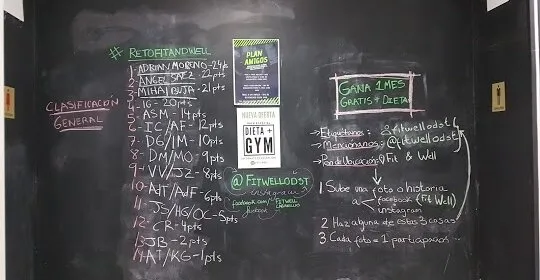 # RETOFITANDWELL
CLASIFICACIÓN
GENERAL
1- ADRIAN MORENO - 24pts
2- ANGEL SAEZ - 22pts
3- MIHAI BUTA - 21pts
4- IG - 20pts
5- ASM - 14pts
6- IC/AF - 12pts
7- DG/IM - 10pts
8- DM/MO - 9pts
9- VV/JZ - 8pts
10- AHT/AHF - 6pts
11- JS/HG/OC - 5pts
12- CR - 4pts
13- JB - 2pts
14- AT/KG - 1pts
PLAN
AMIGOS
NUEVA OFERTA
DIETA +
GYM
@FITWELLODST
instagram
GANA 1 MES
GRATIS + DIETA
Etiquétanos: @fitwellodst
Mencionanos: @fitwellodst
Pon de Ubicación: Fit & Well
1 Sube una foto o historia
a facebook (Fit Well)
instagram
2 Haz alguna de estas 3 cosas
3 Cada foto = 1 participación